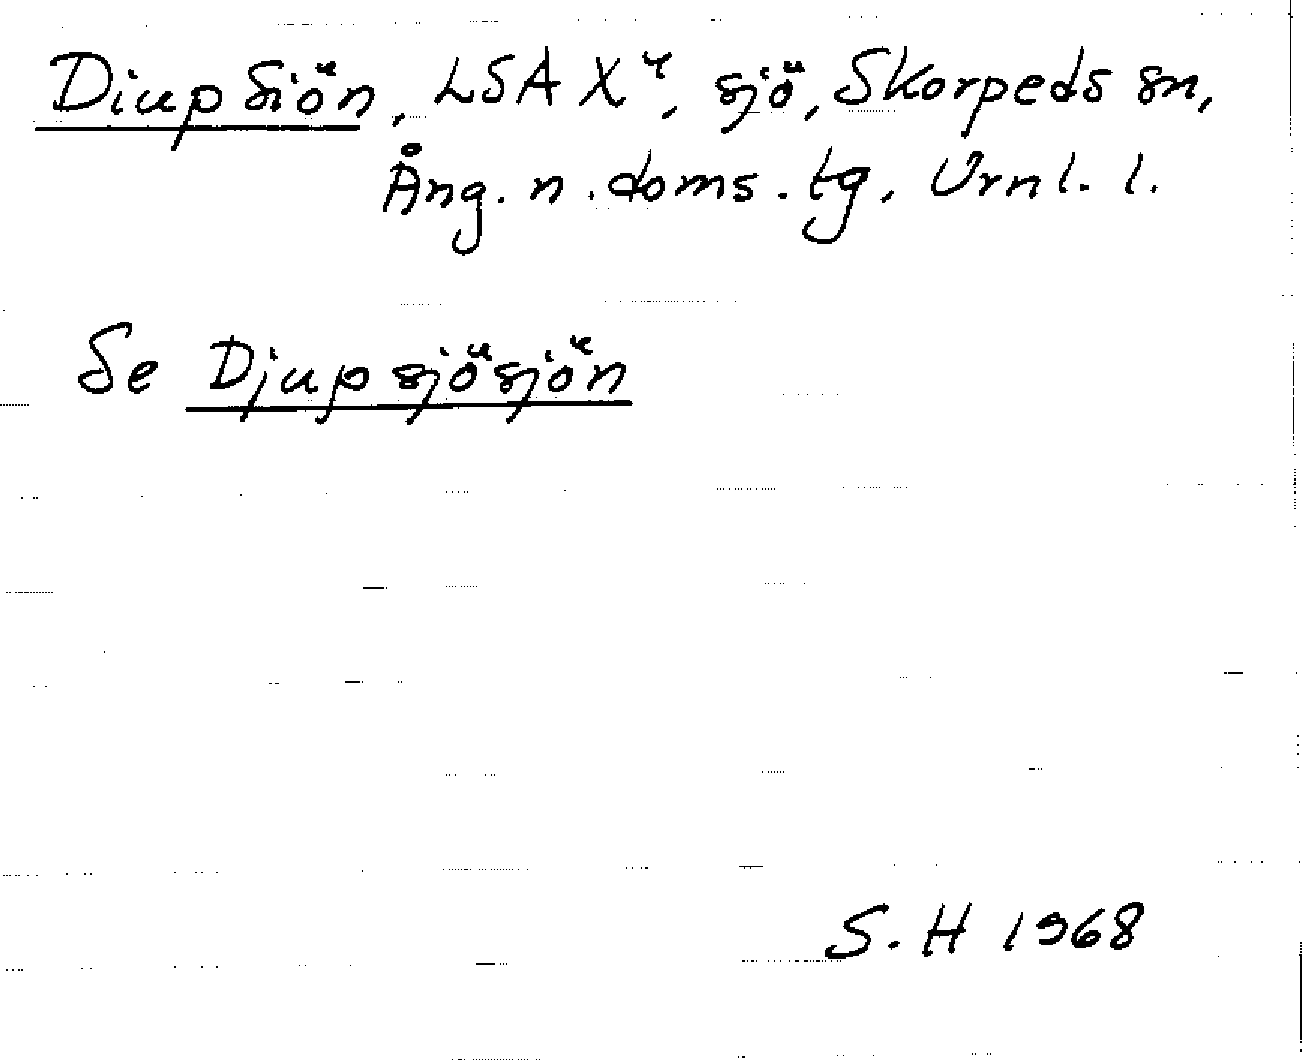 Diup Siön, LSA X⁴, sjö, Skorpeds sn,
Ång. n. doms. tg. Vrnl. l.
Se Djupsjösjön
S. H 1968